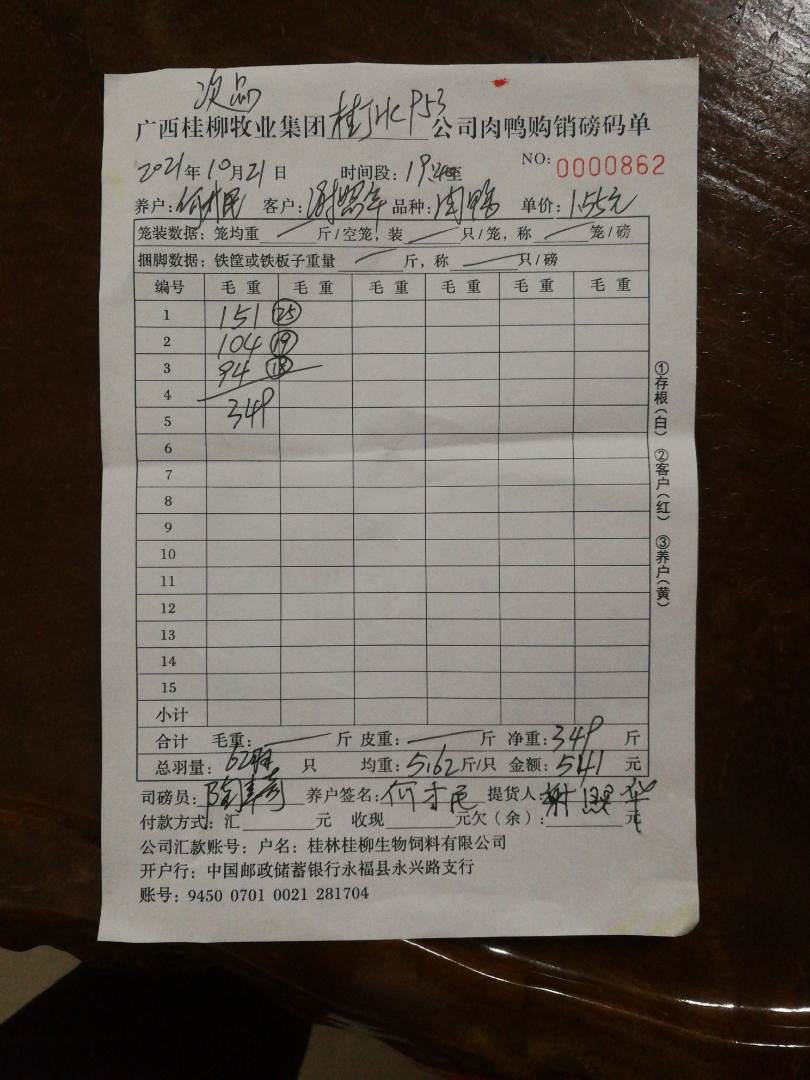 次品
广西桂柳牧业集团 桂 P53 公司肉鸭购销磅码单
2021年10月21日 时间段: NO: 0000862
养户:何才民 客户:谢照华 品种:肉鸭 单价:1.55元
笼装数据: 笼均重 斤/空笼, 装 只/笼, 称 笼/磅
捆脚数据: 铁筐或铁板子重量 斤, 称 只/磅
编号 毛重 毛重 毛重 毛重 毛重 毛重
1 151 25
2 104 19
3 94 18
4
5 349
6
7
8
9
10
11
12
13
14
15
小计
合计 毛重: 斤 皮重: 斤 净重:349 斤
总羽量: 62羽 只 均重:5.62斤/只 金额:541 元
司磅员: 养户签名:何才民 提货人:谢照华
付款方式: 汇 元 收现 元欠(余): 元
公司汇款账号: 户名: 桂林桂柳生物饲料有限公司
开户行: 中国邮政储蓄银行永福县永兴路支行
账号: 9450 0701 0021 281704
①存根(白) ②客户(红) ③养户(黄)